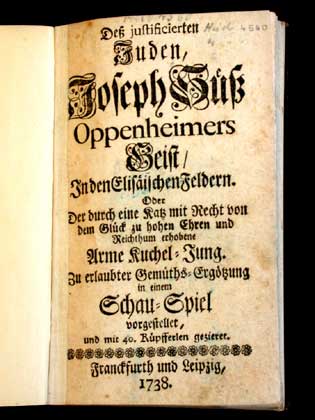 Deß justificierten
Juden,
Joseph Süß
Oppenheimers
Geist /
In den Elisäischen Feldern.
Oder
Der durch eine Katz mit Recht von
dem Glück zu hohen Ehren und
Reichthum erhobene
Arme Kuchel-Jung.
Zu erlaubter Gemüths-Ergötzung
in einem
Schau-Spiel
vorgestellet,
und mit 40. Küpfferlen gezieret.
Franckfurth und Leipzig,
1738.